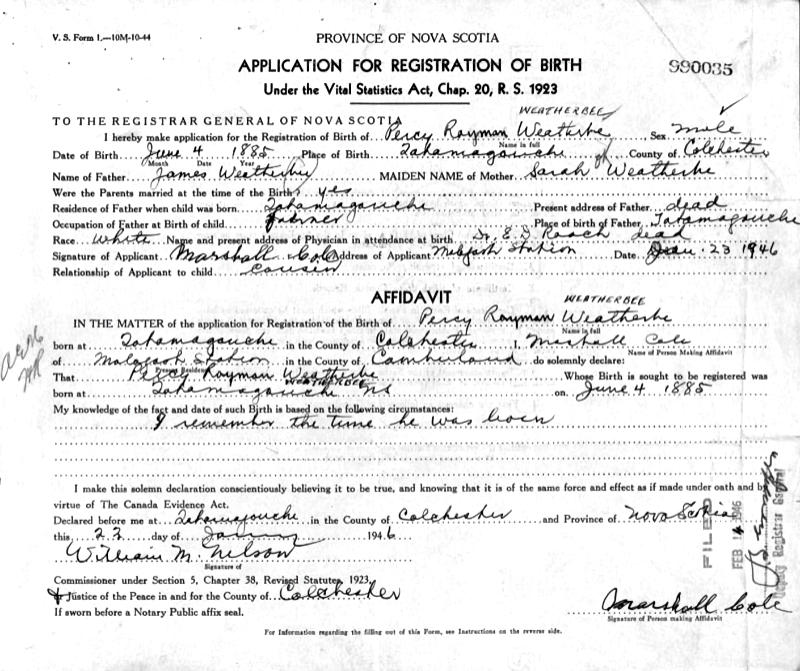 V. S. Form 1.—10M-10-44
PROVINCE OF NOVA SCOTIA
990035
APPLICATION FOR REGISTRATION OF BIRTH
Under the Vital Statistics Act, Chap. 20, R. S. 1923
WEATHERBEE
TO THE REGISTRAR GENERAL OF NOVA SCOTIA
I hereby make application for the Registration of Birth of Percy Rayman Weatherbe Sex Male
Name in full
Date of Birth June 4 1885 Place of Birth Tatamagouche County of Colchester
Month Date Year
Name of Father James Weatherby MAIDEN NAME of Mother Sarah Weatherbe
Were the Parents married at the time of the Birth? yes
Residence of Father when child was born Tatamagouche Present address of Father dead
Occupation of Father at Birth of child farmer Place of birth of Father Tatamagouche
Race White Name and present address of Physician in attendance at birth Dr. E. D. Roach dead
Signature of Applicant Marshall Cole Address of Applicant Malagash Station Date Jan. 23 1946
Relationship of Applicant to child cousin
AFFIDAVIT
WEATHERBEE
IN THE MATTER of the application for Registration of the Birth of Percy Rayman Weatherbe
Name in full
born at Tatamagouche in the County of Colchester I, Marshall Cole
Name of Person Making Affidavit
of Malagash Station in the County of Cumberland do solemnly declare:
Present Residence
That Percy Rayman Weatherbe Whose Birth is sought to be registered was
WEATHERBEE
born at Tatamagouche NS on June 4 1885
My knowledge of the fact and date of such Birth is based on the following circumstances:
I remember the time he was born
I make this solemn declaration conscientiously believing it to be true, and knowing that it is of the same force and effect as if made under oath and by
virtue of The Canada Evidence Act.
Declared before me at Tatamagouche in the County of Colchester and Province of Nova Scotia
this 23 day of January 1946
William M. Nelson
Signature of
Commissioner under Section 5, Chapter 38, Revised Statutes, 1923,
Justice of the Peace in and for the County of Colchester
If sworn before a Notary Public affix seal.
Marshall Cole
Signature of Person making Affidavit
FILED
FEB 14 1946
Deputy Registrar General
For Information regarding the filling out of this Form, see Instructions on the reverse side.